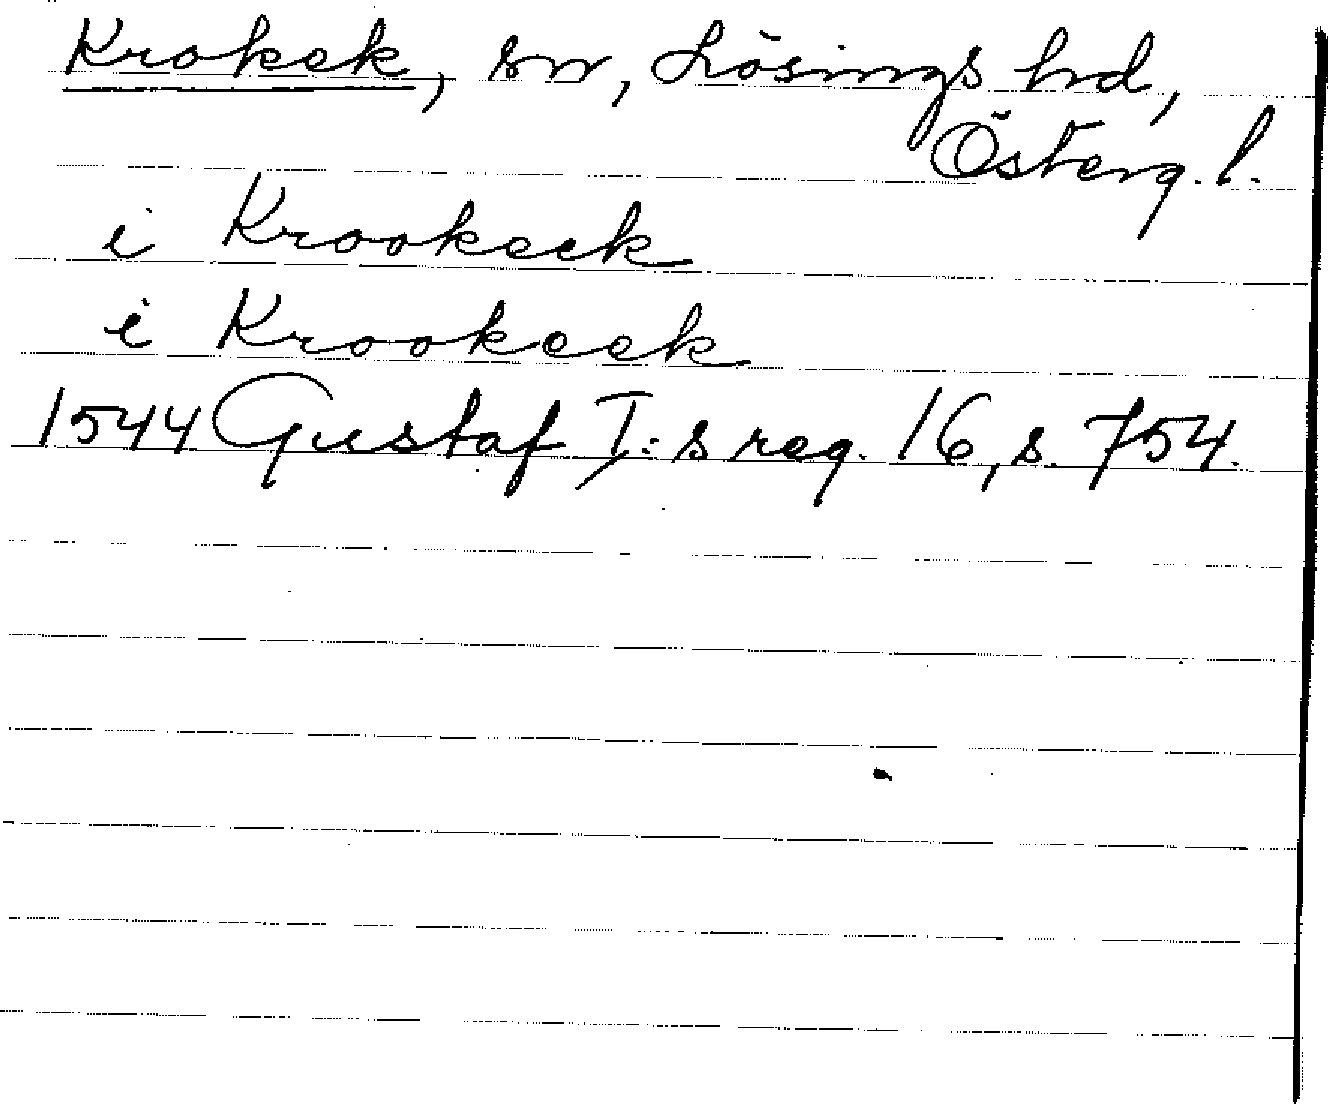 Krokek, sn, Lösings hd,
Österg. l.
i Krookeek
i Krookeek
1544 Gustaf I:s reg. 16, s. 754.